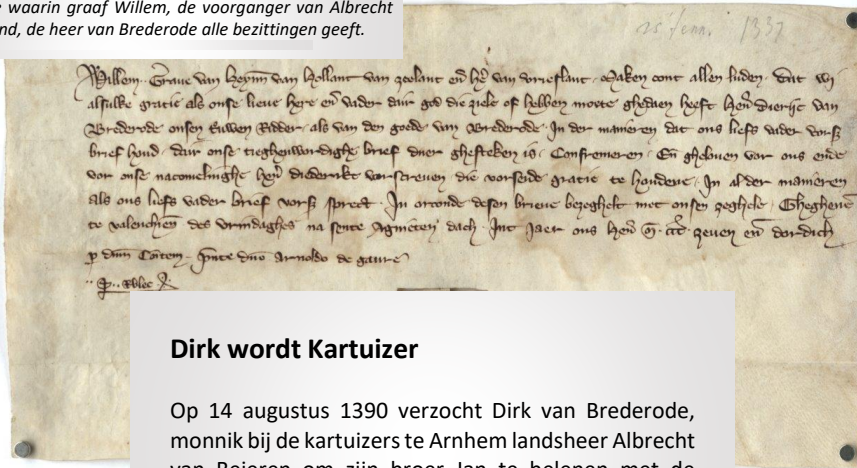 e waarin graaf Willem, de voorganger van Albrecht
nd, de heer van Brederode alle bezittingen geeft.
25 Jenn. 1337
Willem Grave van Heynn van Hollant van zeelant en her van vrieslant maken cont allen luden dat wi
alsulke gratie als onse lieve here en vader dair god die ziele of hebben moete ghedaen heeft hern diericx van
Brederode onsen Ridder als van den goede van Brederode In der manieren dat ons liefs vader vors
brief houd dair onse tieghenwordighe brief duer ghesteken is Confirmeren En gheloven vor ons ende
vor onse nacomelinghe hern diederikt vorscreven die vorseide gratie te houdene In al der manieren
als ons liefs vader brief vors sprect In orconde desen brieve bezeghelt met onsen zeghele Ghegheven
te valenchien des vrindaghes na sente Agnieten dach Int Jaer ons hern zeven en dordich
de gavre
Dirk wordt Kartuizer
Op 14 augustus 1390 verzocht Dirk van Brederode,
monnik bij de kartuizers te Arnhem landsheer Albrecht
van Beieren om zijn broer Jan te belenen met de